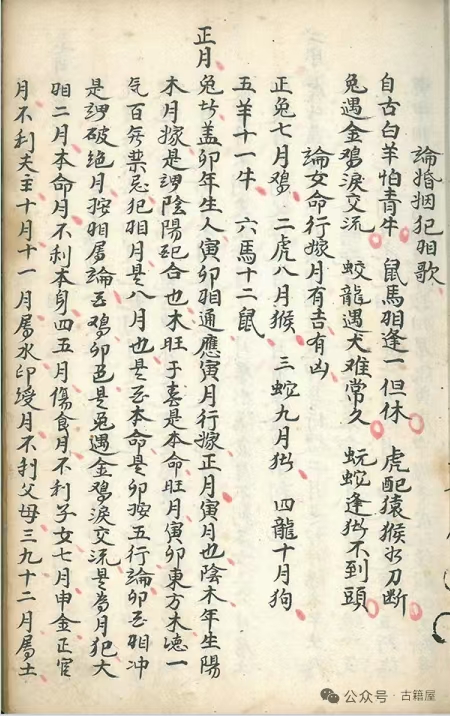 論婚姻犯相歌
自古白羊怕青牛　鼠馬相逢一但休　虎配猿猴水刀断
兔遇金鷄淚交流　蛟龍遇犬难常久　蚖蛇逢猪不到頭
論女命行嫁月有吉有凶
正兔七月鷄　二虎八月猴　三蛇九月猪　四龍十月狗
五羊十一牛　六馬十二鼠
正月兔女蓋卯年生人寅卯相通應寅月行嫁正月寅月也陰木年生陽
木月嫁是謂陰陽配合也木旺于春是本命旺月寅卯東方木德一
気百無禁忌犯相月是八月也是忌本命是卯按五行論卯忌相冲
是謂破绝月按相屬論忌鷄卯酉是兔遇金鷄淚交流是為月犯大
相二月本命月不利本身四五月傷食月不利子女七月申金正官
月不利夫主十月十一月屬水印绶月不利父母三九十二月屬土
公众号·古籍屋